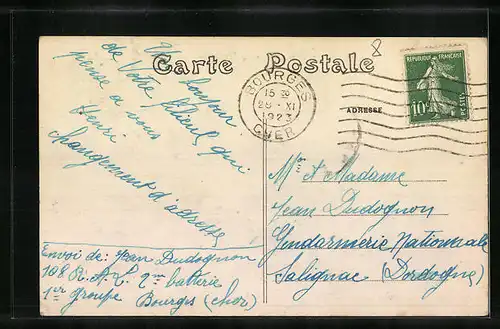 Carte Postale
Un bonjour
de Votre filieul qui
pense a vous
Henri
changement d'adresse
Envoi de: Jean Dudognon
108 R. A. L. 2me batterie
1er groupe Bourges (cher)
BOURGES
15 30
25 - XI
1923
CHER
REPUBLIQUE FRANÇAISE
10c
POSTES
ADRESSE
Mr et Madame
Jean Dudognon
Gendarmerie Nationnale
Salignac (Dordogne)